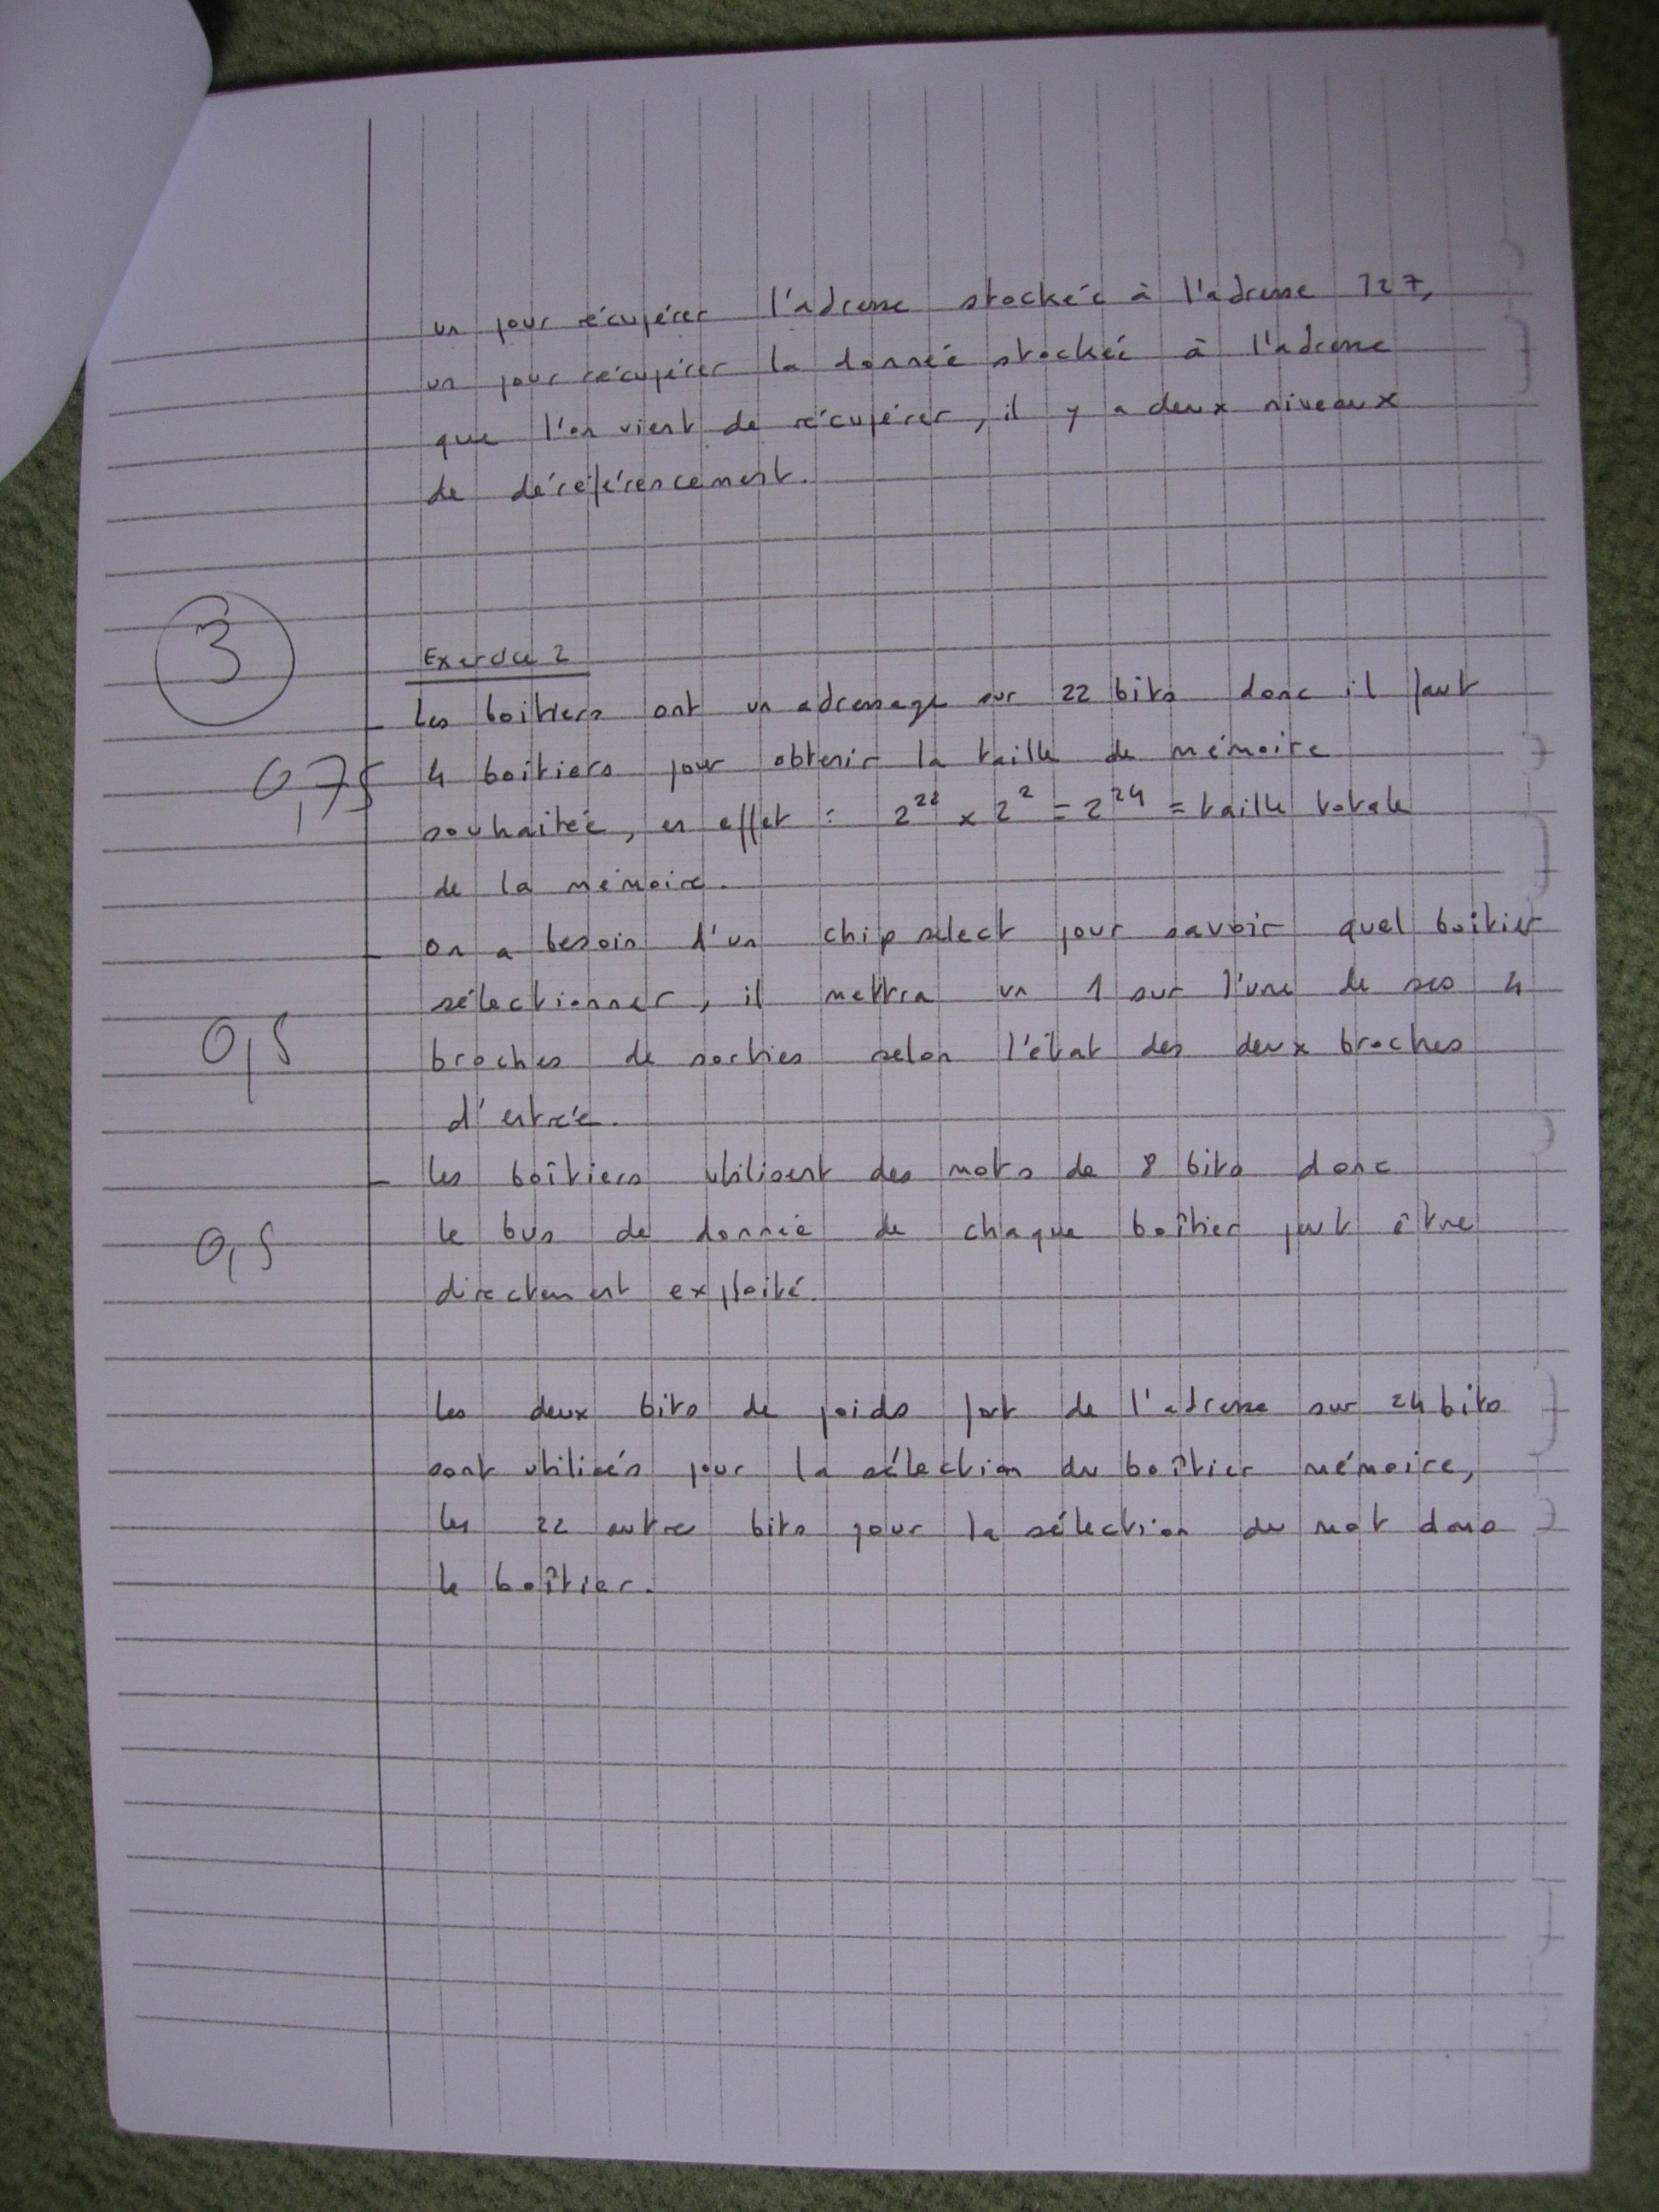 un pour récupérer l'adresse stockée à l'adresse 127,
un pour récupérer la donnée stockée à l'adresse
que l'on vient de récupérer, il y a deux niveaux
de déréférencement.
3
Exercice 2
- Les boitiers ont un adressage sur 22 bits donc il faut
0,75 4 boîtiers pour obtenir la taille de mémoire
souhaitée, en effet : 2^22 x 2^2 = 2^24 = taille totale
de la mémoire.
- On a besoin d'un chip select pour savoir quel boîtier
sélectionner, il mettra un 1 sur l'une de ses 4
0,5 broches de sorties selon l'état des deux broches
d'entrée.
- les boîtiers utilisent des mots de 8 bits donc
0,5 le bus de donnée de chaque boîtier peut être
directement exploité.
Les deux bits de poids fort de l'adresse sur 24 bits
sont utilisés pour la sélection du boîtier mémoire,
les 22 autres bits pour la sélection du mot dans
le boîtier.